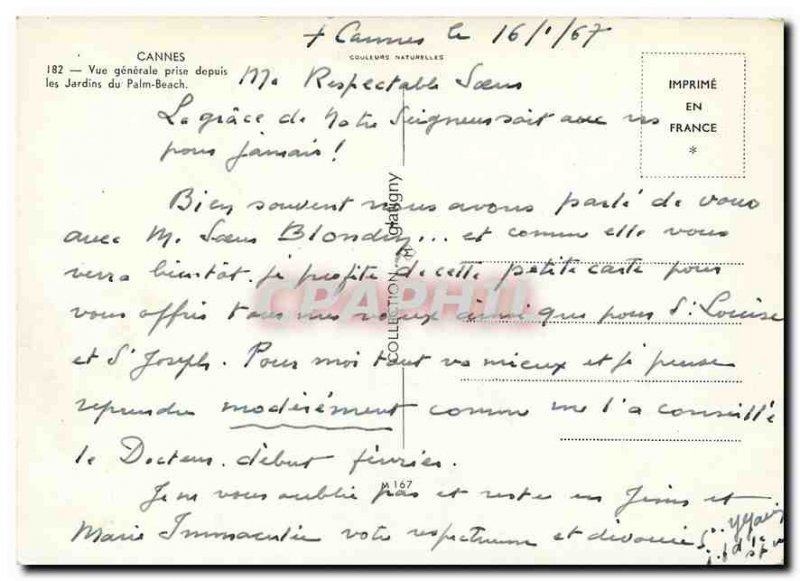 + Cannes le 16/1/67
CANNES
182 — Vue générale prise depuis
les Jardins du Palm-Beach.
COULEURS NATURELLES
IMPRIMÉ
EN
FRANCE
*
Ma Respectable Sœur
La grâce de Notre Seigneur soit avec ns
pour jamais !
Bien souvent nous avons parlé de vous
avec M. Sœur Blondin... et comme elle vous
verra bientôt je profite de cette petite carte pour
vous offrir tous mes vœux ainsi que pour Sr Louise
et Sr Joseph. Pour moi tout va mieux et je pense
reprendre modérément comme me l'a conseillé
le Docteur début février.
Je ne vous oublie pas et reste en Jésus et
Marie Immaculée votre respectueuse et dévouée
COLLECTION glatigny
M 167
CPAPHIL